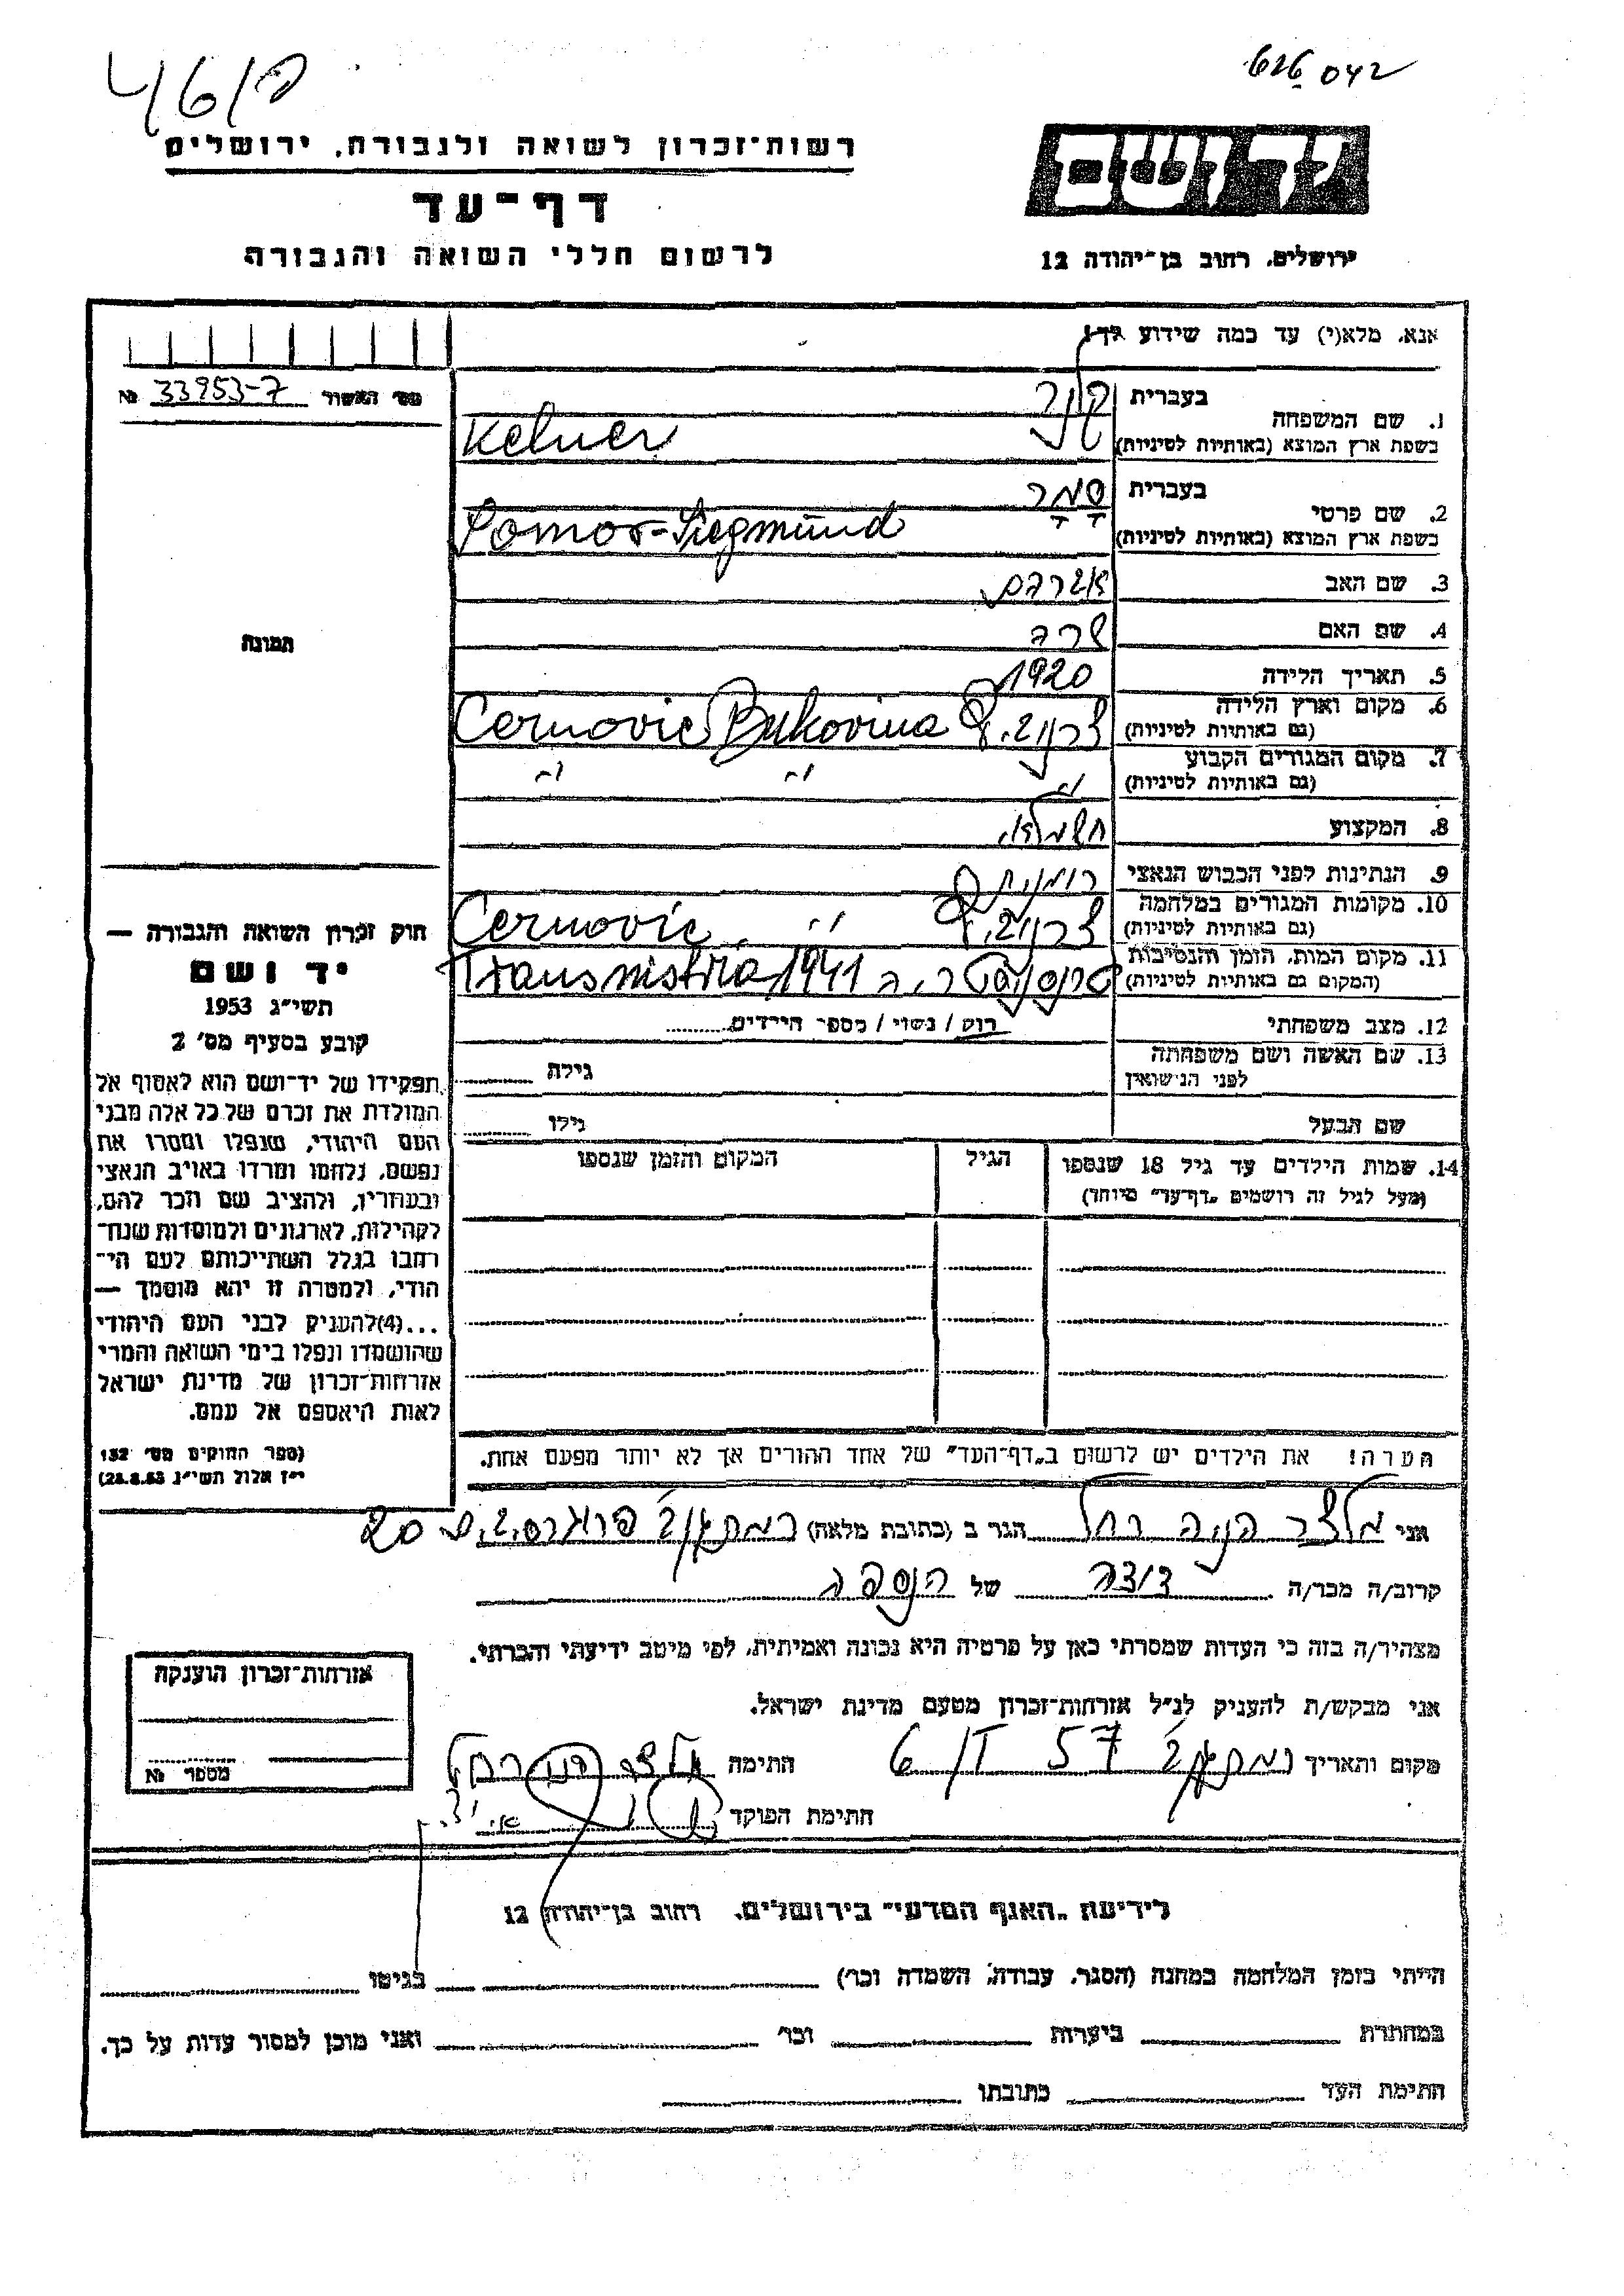 626042
4616/פ
יד ושם
ירושלים, רחוב בן־יהודה 12
רשות־זכרון לשואה ולגבורה, ירושלים
דף־עד
לרשום חללי השואה והגבורה
אנא, מלא(י) עד כמה שידוע לך!
מס׳ האשור 33953-7 №
1. שם המשפחה בעברית קלנר
בשפת ארץ המוצא (באותיות לטיניות) Kelner
2. שם פרטי בעברית סמר
בשפת ארץ המוצא (באותיות לטיניות) Somor-Siegmund
3. שם האב אברהם
4. שם האם שרה
5. תאריך הלידה 1920
6. מקום וארץ הלידה
(גם באותיות לטיניות) צרנוביץ Cernovic Bukovina
7. מקום המגורים הקבוע
(גם באותיות לטיניות) " " "
8. המקצוע חשמלאי
9. הנתינות לפני הכבוש הנאצי רומנית
10. מקומות המגורים במלחמה
(גם באותיות לטיניות) צרנוביץ " Cernovic
11. מקום המות, הזמן והנסיבות
(המקום גם באותיות לטיניות) טרנסניסטריה Transnistria 1941
12. מצב משפחתי רווק / נשוי / מספר הילדים
13. שם האשה ושם משפחתה
לפני הנישואין גילה
שם הבעל גילו
14. שמות הילדים עד גיל 18 שנספו הגיל המקום והזמן שנספו
(מעל לגיל זה רושמים „דף־עד״ מיוחד)
הערה! את הילדים יש לרשום ב„דף־העד״ של אחד ההורים אך לא יותר מפעם אחת.
תמונה
חוק זכרון השואה והגבורה —
יד ושם
תשי״ג 1953
קובע בסעיף מס׳ 2
תפקידו של יד־ושם הוא לאסוף אל
המולדת את זכרם של כל אלה מבני
העם היהודי, שנפלו ומסרו את
נפשם, נלחמו ומרדו באויב הנאצי
ובעוזריו, ולהציב שם וזכר להם,
לקהילות, לארגונים ולמוסדות שנח־
רבו בגלל השתייכותם לעם הי־
הודי, ולמטרה זו יהא מוסמך —
...(4) להעניק לבני העם היהודי
שהושמדו ונפלו בימי השואה והמרי
אזרחות־זכרון של מדינת ישראל
לאות היאספם אל עמם.
(ספר החוקים מס׳ 132
י״ז אלול תשי״ג 28.8.53)
אני מלצר רחל הגר ב (כתובת מלאה) רמת גן 20
קרוב/ה מכר/ה דודה של הנספה
מצהיר/ה בזה כי העדות שמסרתי כאן על פרטיה היא נכונה ואמיתית, לפי מיטב ידיעתי והכרתי.
אני מבקש/ת להעניק לנ״ל אזרחות־זכרון מטעם מדינת ישראל.
מקום ותאריך רמת גן 57 6/I חתימה מלצר רחל
חתימת הפוקד
אזרחות־זכרון הוענקה
מספר №
לידיעת „האגף המדעי״ בירושלים, רחוב בן־יהודה 12
הייתי בזמן המלחמה במחנה (הסגר, עבודה, השמדה וכו׳) בגיטו
במחתרת ביערות וכו׳ ואני מוכן למסור עדות על כך.
חתימת העד כתובתו